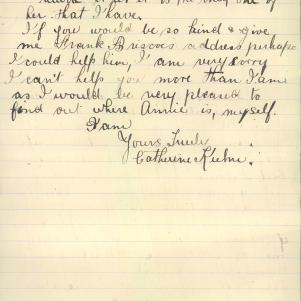 it is the only one of
her that I have.
If you would be so kind & give
me Frank Briscoes address perhaps
I could help him, I am very sorry
I can't help you more than I am
as I would be very pleased to
find out where Annie is, myself.
I am
Yours Truly
Catherine Kuhne.